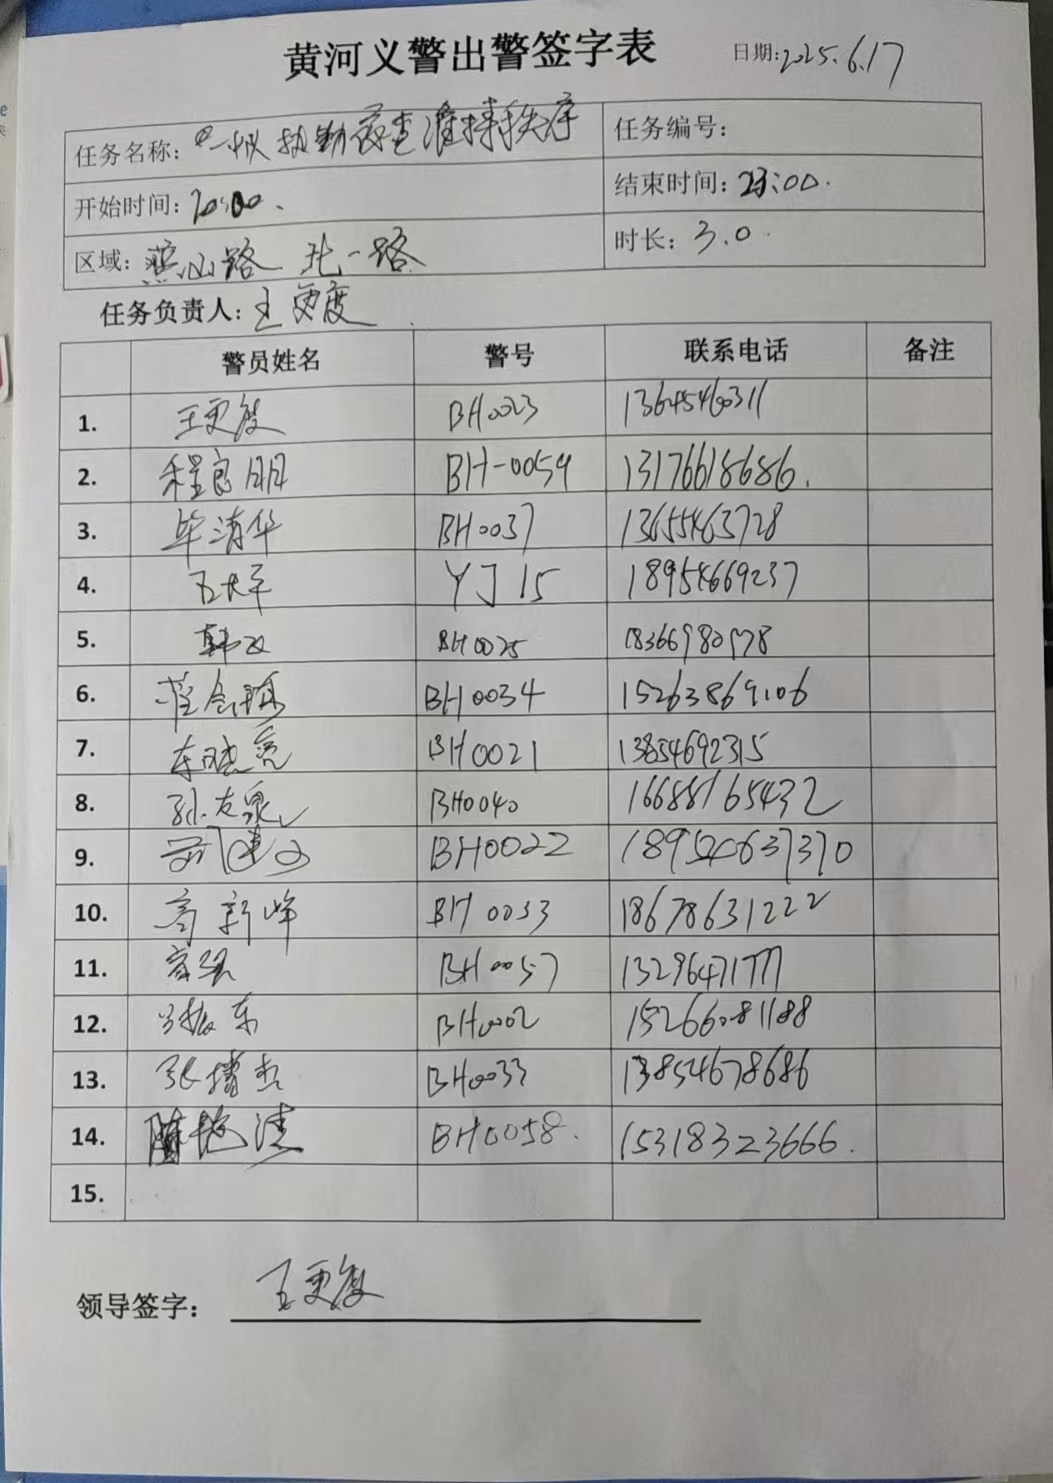 黄河义警出警签字表
日期:2025.6.17
任务名称: 执勤夜查维持秩序
任务编号:
开始时间: 20:00.
结束时间: 23:00.
区域: 燕山路 北一路
时长: 3.0
任务负责人: 王更度
警员姓名 警号 联系电话 备注
1. 王更度 BH0023 13645460311
2. 程良朋 BH-0054 13176618686.
3. 毕清华 BH0037 13655463728
4. YJ15 18954669237
5. BH0025
6. BH0034 15263869106
7. BH0021 13854692315
8. 孙友泉 BH0040 16688165432
9. BH0022
10. 高新峰 BH0033 18678631222
11. 高强 BH0057 13296471777
12. 振东 BH0002 15266081188
13. 张 BH0033 13854678686
14. 陈艳清 BH0058. 15318323666.
15.
领导签字: 王更度